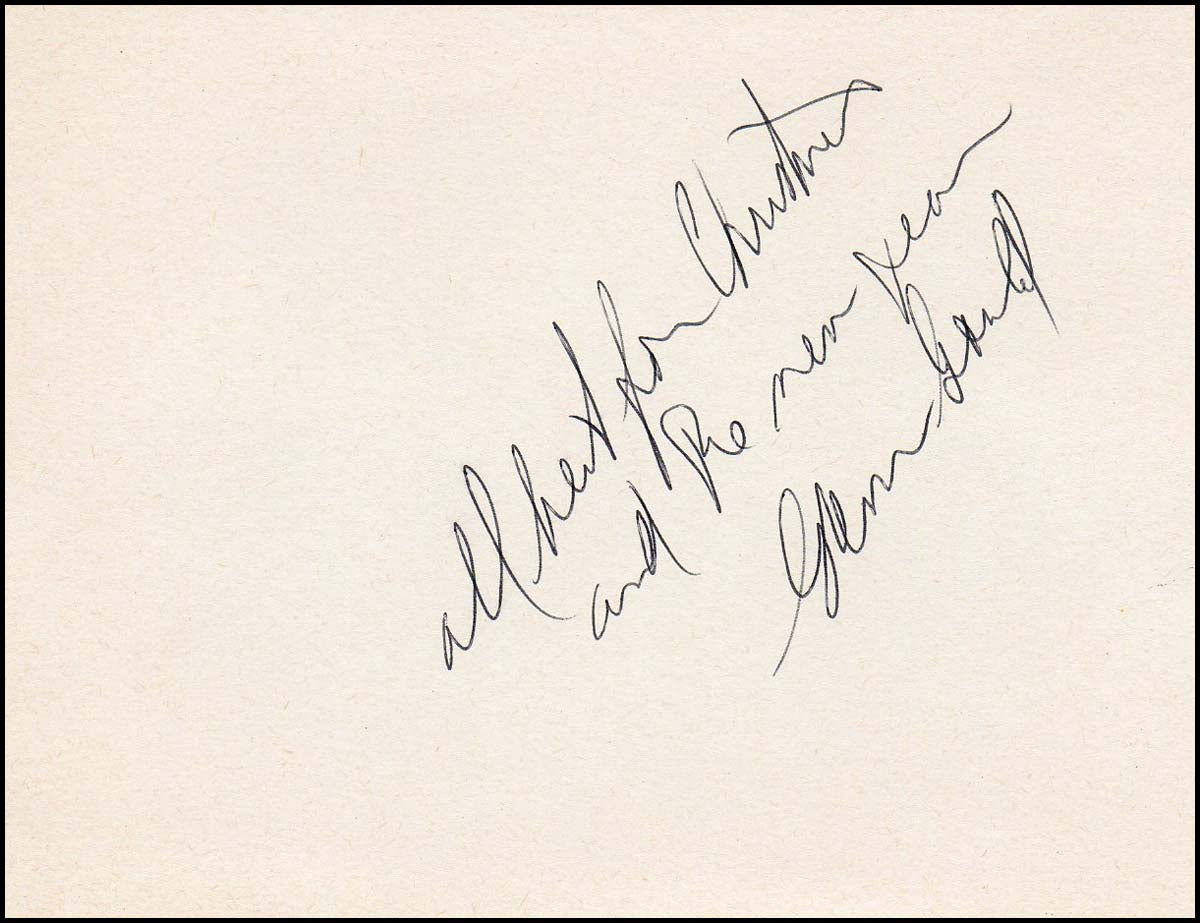 all best for Christmas
and the new year
Glenn Gould